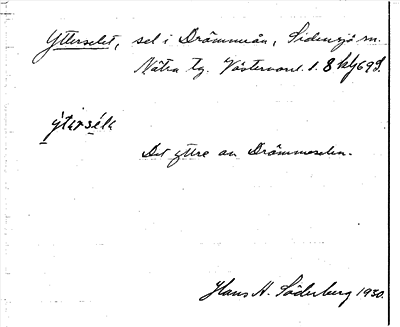 Ytterselet, sel i Drömmeån, Sidensjö sn.
Nätra tg. Västernorrl. l. 8 H
ýtərsélə
Det yttre av Drömmeselen.
Hans A. Söderberg 1930.